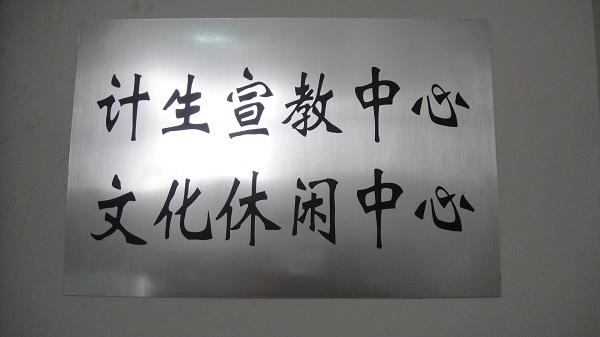 计生宣教中心
文化休闲中心